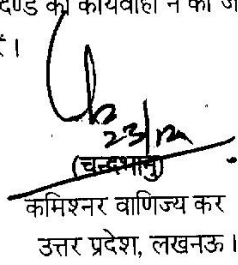 दण्ड की कार्यवाही न की ज
23/12
(चन्द्रभानु)
कमिश्नर वाणिज्य कर
उत्तर प्रदेश, लखनऊ।